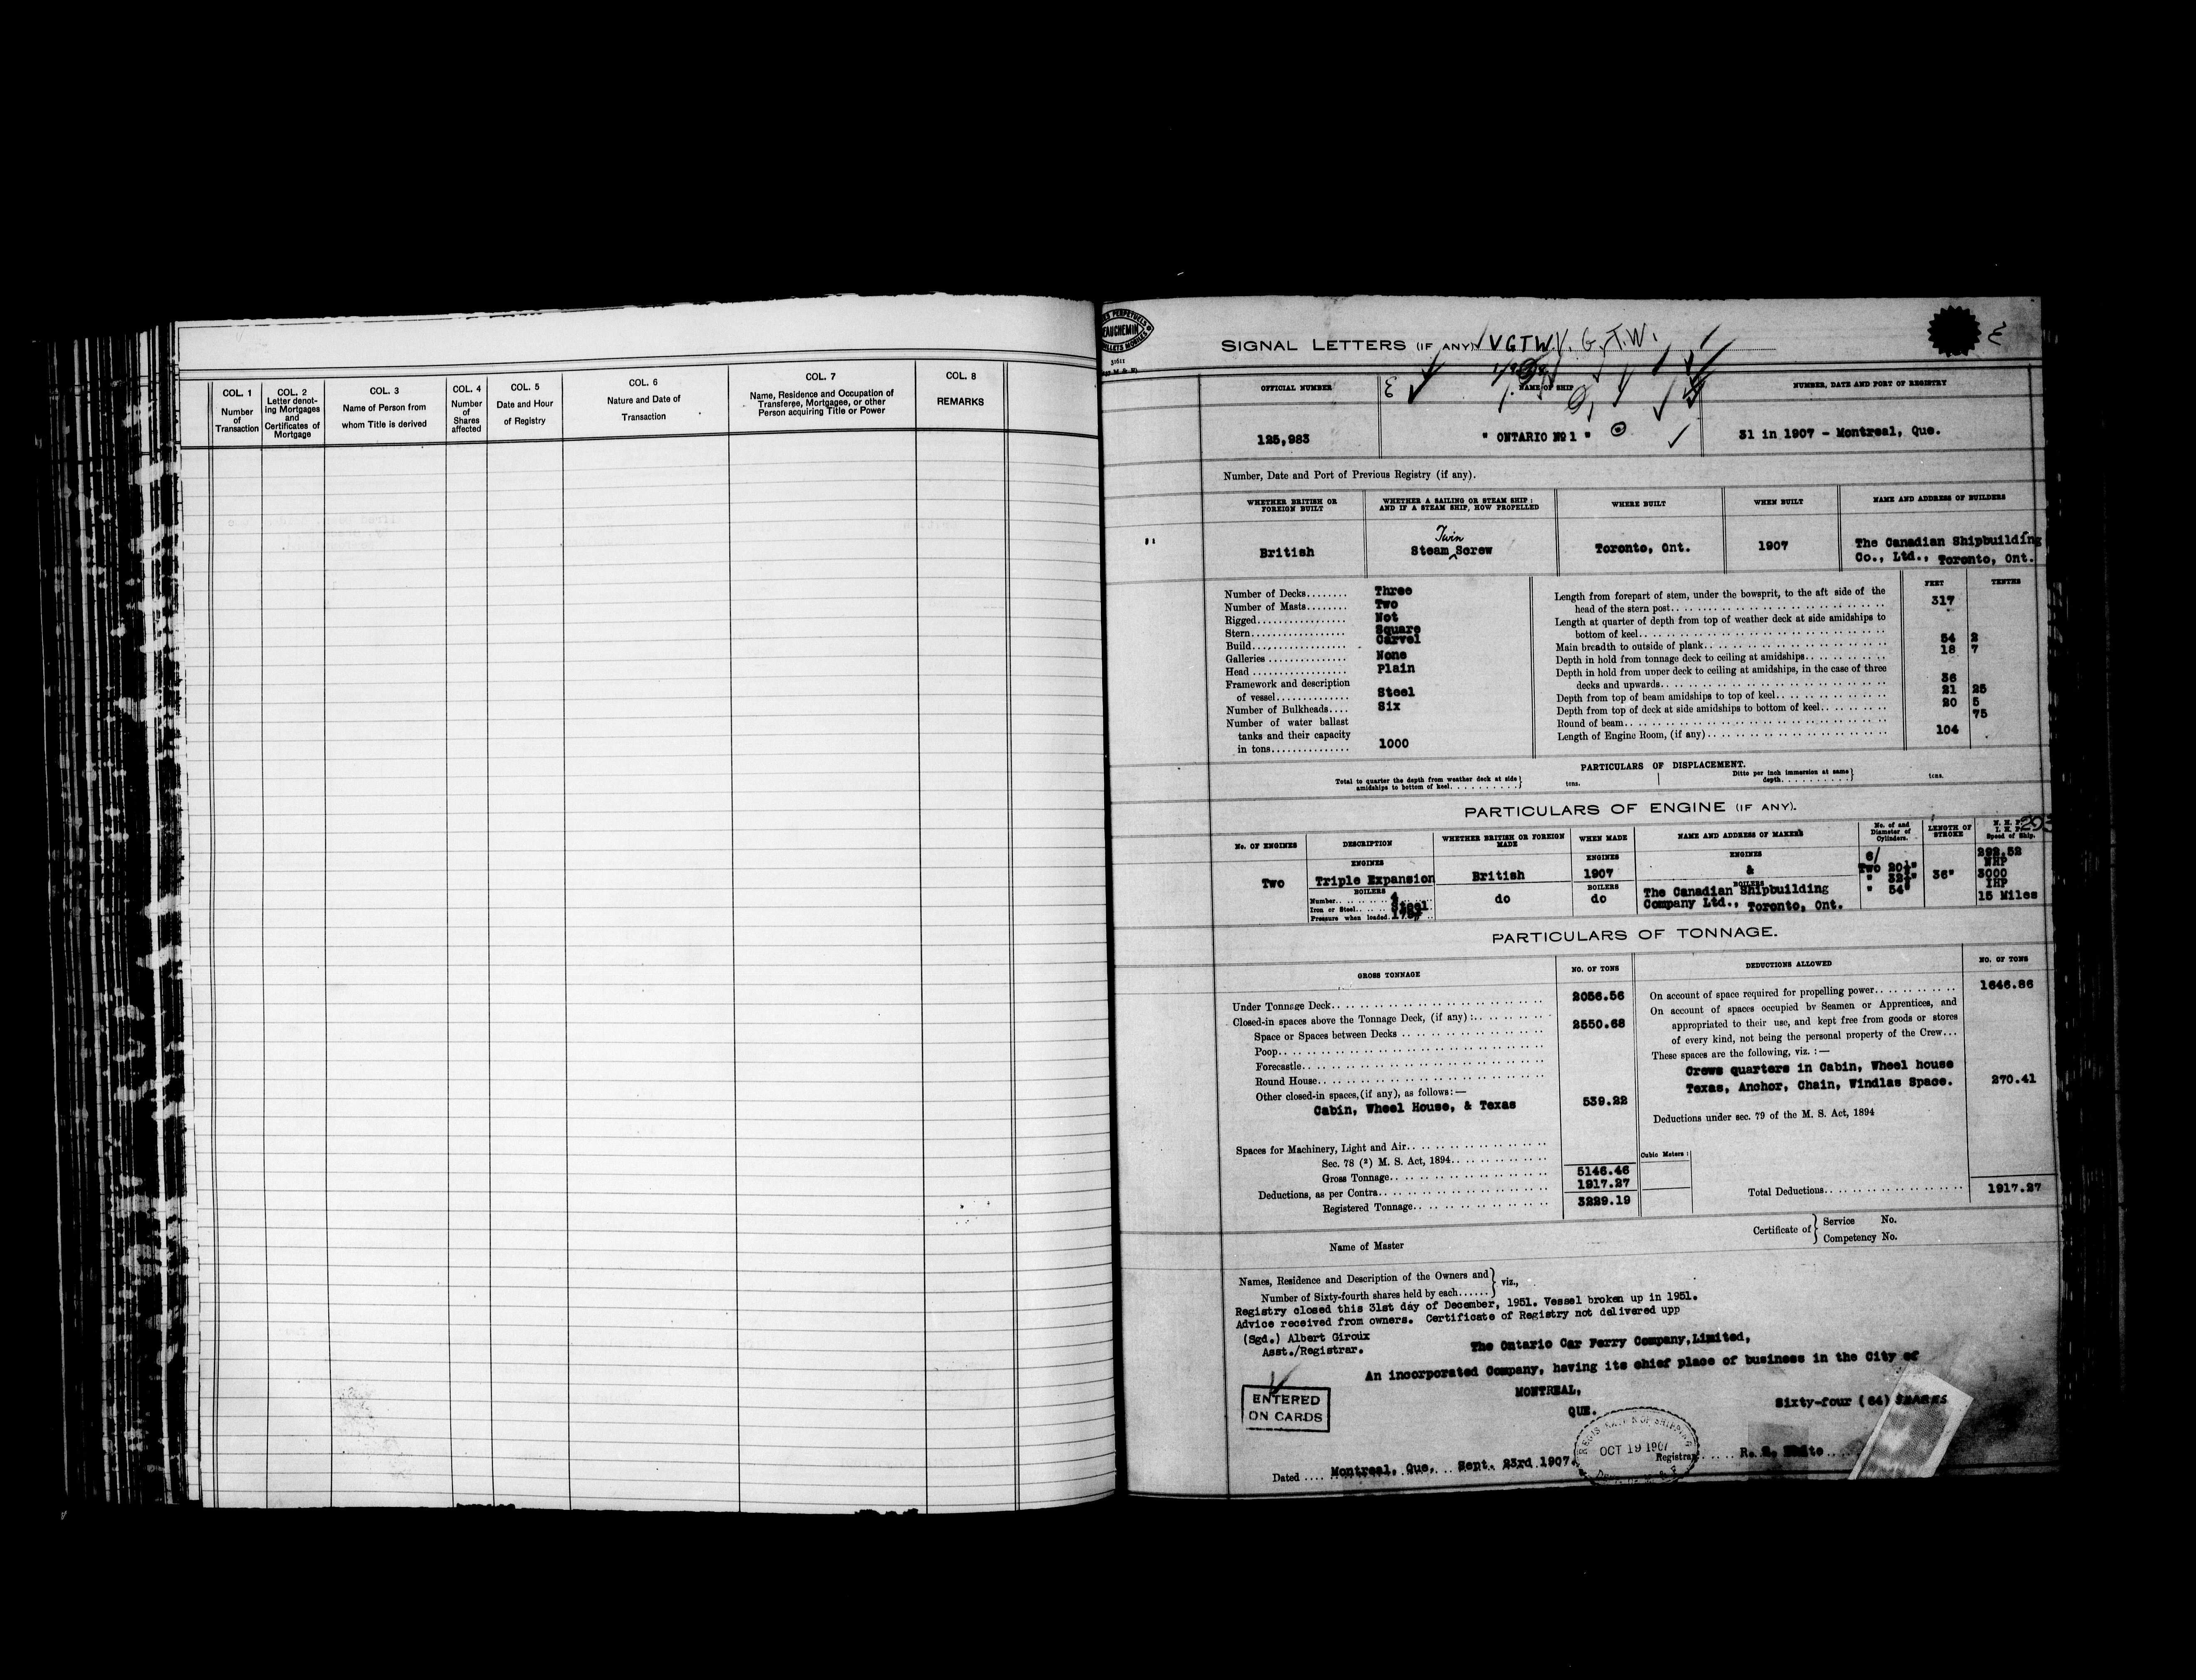 COL. 1
Number
of
Transaction
COL. 2
Letter denot-
ing Mortgages
and
Certificates of
Mortgage
COL. 3
Name of Person from
whom Title is derived
COL. 4
Number
of
Shares
affected
COL. 5
Date and Hour
of Registry
COL. 6
Nature and Date of
Transaction
COL. 7
Name, Residence and Occupation of
Transferee, Mortgagee, or other
Person acquiring Title or Power
COL. 8
REMARKS
SIGNAL LETTERS (IF ANY) VGTW V. G. T. W.
OFFICIAL NUMBER
NAME OF SHIP
NUMBER, DATE AND PORT OF REGISTRY
125,983
" ONTARIO No 1 "
31 in 1907 - Montreal, Que.
Number, Date and Port of Previous Registry (if any).
WHETHER BRITISH OR
FOREIGN BUILT
WHETHER A SAILING OR STEAM SHIP:
AND IF A STEAM SHIP, HOW PROPELLED
WHERE BUILT
WHEN BUILT
NAME AND ADDRESS OF BUILDERS
British
Twin
Steam Screw
Toronto, Ont.
1907
The Canadian Shipbuilding
Co., Ltd., Toronto, Ont.
FEET TENTHS
Number of Decks........ Three
Number of Masts........ Two
Rigged................. Not
Stern.................. Square
Build.................. Carvel
Galleries .............. None
Head .................. Plain
Framework and description
of vessel.............. Steel
Number of Bulkheads.... Six
Number of water ballast
tanks and their capacity
in tons............... 1000
Length from forepart of stem, under the bowsprit, to the aft side of the
head of the stern post.......... 317
Length at quarter of depth from top of weather deck at side amidships to
bottom of keel..........
Main breadth to outside of plank.......... 54 2
Depth in hold from tonnage deck to ceiling at amidships.......... 18 7
Depth in hold from upper deck to ceiling at amidships, in the case of three
decks and upwards.......... 36
Depth from top of beam amidships to top of keel.......... 21 25
Depth from top of deck at side amidships to bottom of keel.......... 20 5
Round of beam.......... 75
Length of Engine Room, (if any).......... 104
PARTICULARS OF DISPLACEMENT.
Total to quarter the depth from weather deck at side
amidships to bottom of keel.......... tons.
Ditto per inch immersion at same
depth.......... tons.
PARTICULARS OF ENGINE (IF ANY).
No. OF ENGINES
DESCRIPTION
WHETHER BRITISH OR FOREIGN
MADE
WHEN MADE
NAME AND ADDRESS OF MAKERS
No. of and
Diameter of
Cylinders.
LENGTH OF
STROKE
Speed of Ship.
Two
ENGINES
Triple Expansion
BOILERS
Number.......... 4
Iron or Steel...... Steel
Pressure when loaded.
British
do
ENGINES
1907
BOILERS
do
ENGINES
&
BOILERS
The Canadian Shipbuilding
Company Ltd., Toronto, Ont.
6/
Two 20½"
" 32½"
" 54"
36"
292.52
NHP
3000
IHP
15 Miles
PARTICULARS OF TONNAGE.
GROSS TONNAGE
NO. OF TONS
DEDUCTIONS ALLOWED
NO. OF TONS
Under Tonnage Deck.......... 2056.56
Closed-in spaces above the Tonnage Deck, (if any):..........
Space or Spaces between Decks .......... 2550.68
Poop..........
Forecastle..........
Round House..........
Other closed-in spaces, (if any), as follows:—
Cabin, Wheel House, & Texas 539.22
Spaces for Machinery, Light and Air..........
Sec. 78 (2) M. S. Act, 1894..........
Gross Tonnage.......... 5146.46
Deductions, as per Contra.......... 1917.27
Registered Tonnage.......... 3229.19
On account of space required for propelling power.......... 1646.86
On account of spaces occupied by Seamen or Apprentices, and
appropriated to their use, and kept free from goods or stores
of every kind, not being the personal property of the Crew...
These spaces are the following, viz. :—
Crews quarters in Cabin, Wheel house
Texas, Anchor, Chain, Windlas Space. 270.41
Deductions under sec. 79 of the M. S. Act, 1894
Cubic Meters :
Total Deductions.......... 1917.27
Name of Master
Certificate of
Service No.
Competency No.
Names, Residence and Description of the Owners and
Number of Sixty-fourth shares held by each...... viz.,
Registry closed this 31st day of December, 1951. Vessel broken up in 1951.
Advice received from owners. Certificate of Registry not delivered upp
(Sgd.) Albert Giroux
Asst./Registrar.
The Ontario Car Ferry Company,Limited,
An incorporated Company, having its chief place of business in the City of
MONTREAL,
QUE.
Sixty-four (64) SHARES
ENTERED
ON CARDS
OCT 19 1907
Dated .... Montreal, Que, Sept. 23rd 1907.
Registrar